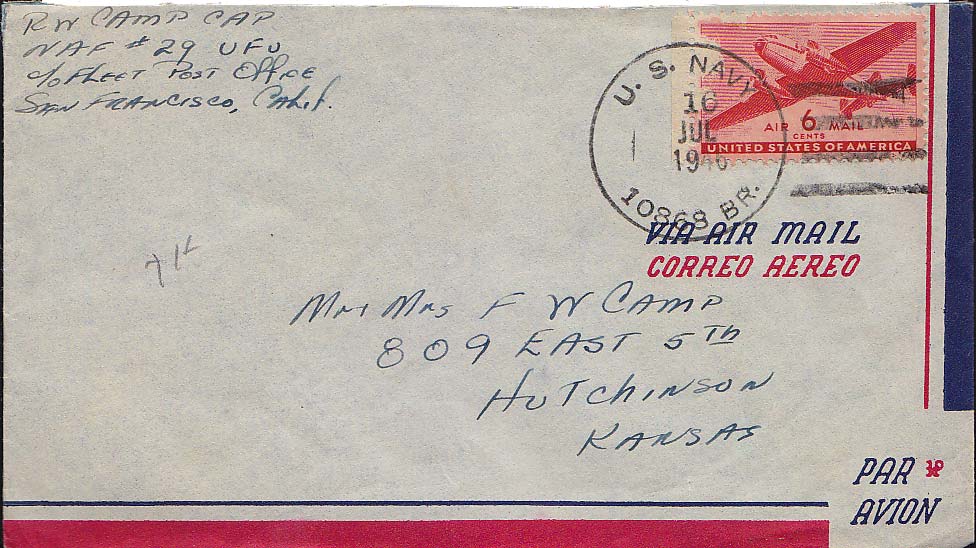 RW CAMP CAP
NAF #29 UFU
c/o FLEET POST OFFICE
SAN FRANCISCO, CALIF.
U. S. NAVY
16
JUL
10868 BR.
AIR 6 MAIL
CENTS
UNITED STATES OF AMERICA
VIA AIR MAIL
CORREO AEREO
Mr + Mrs F W CAMP
809 EAST 5TH
HUTCHINSON
KANSAS
PAR
AVION